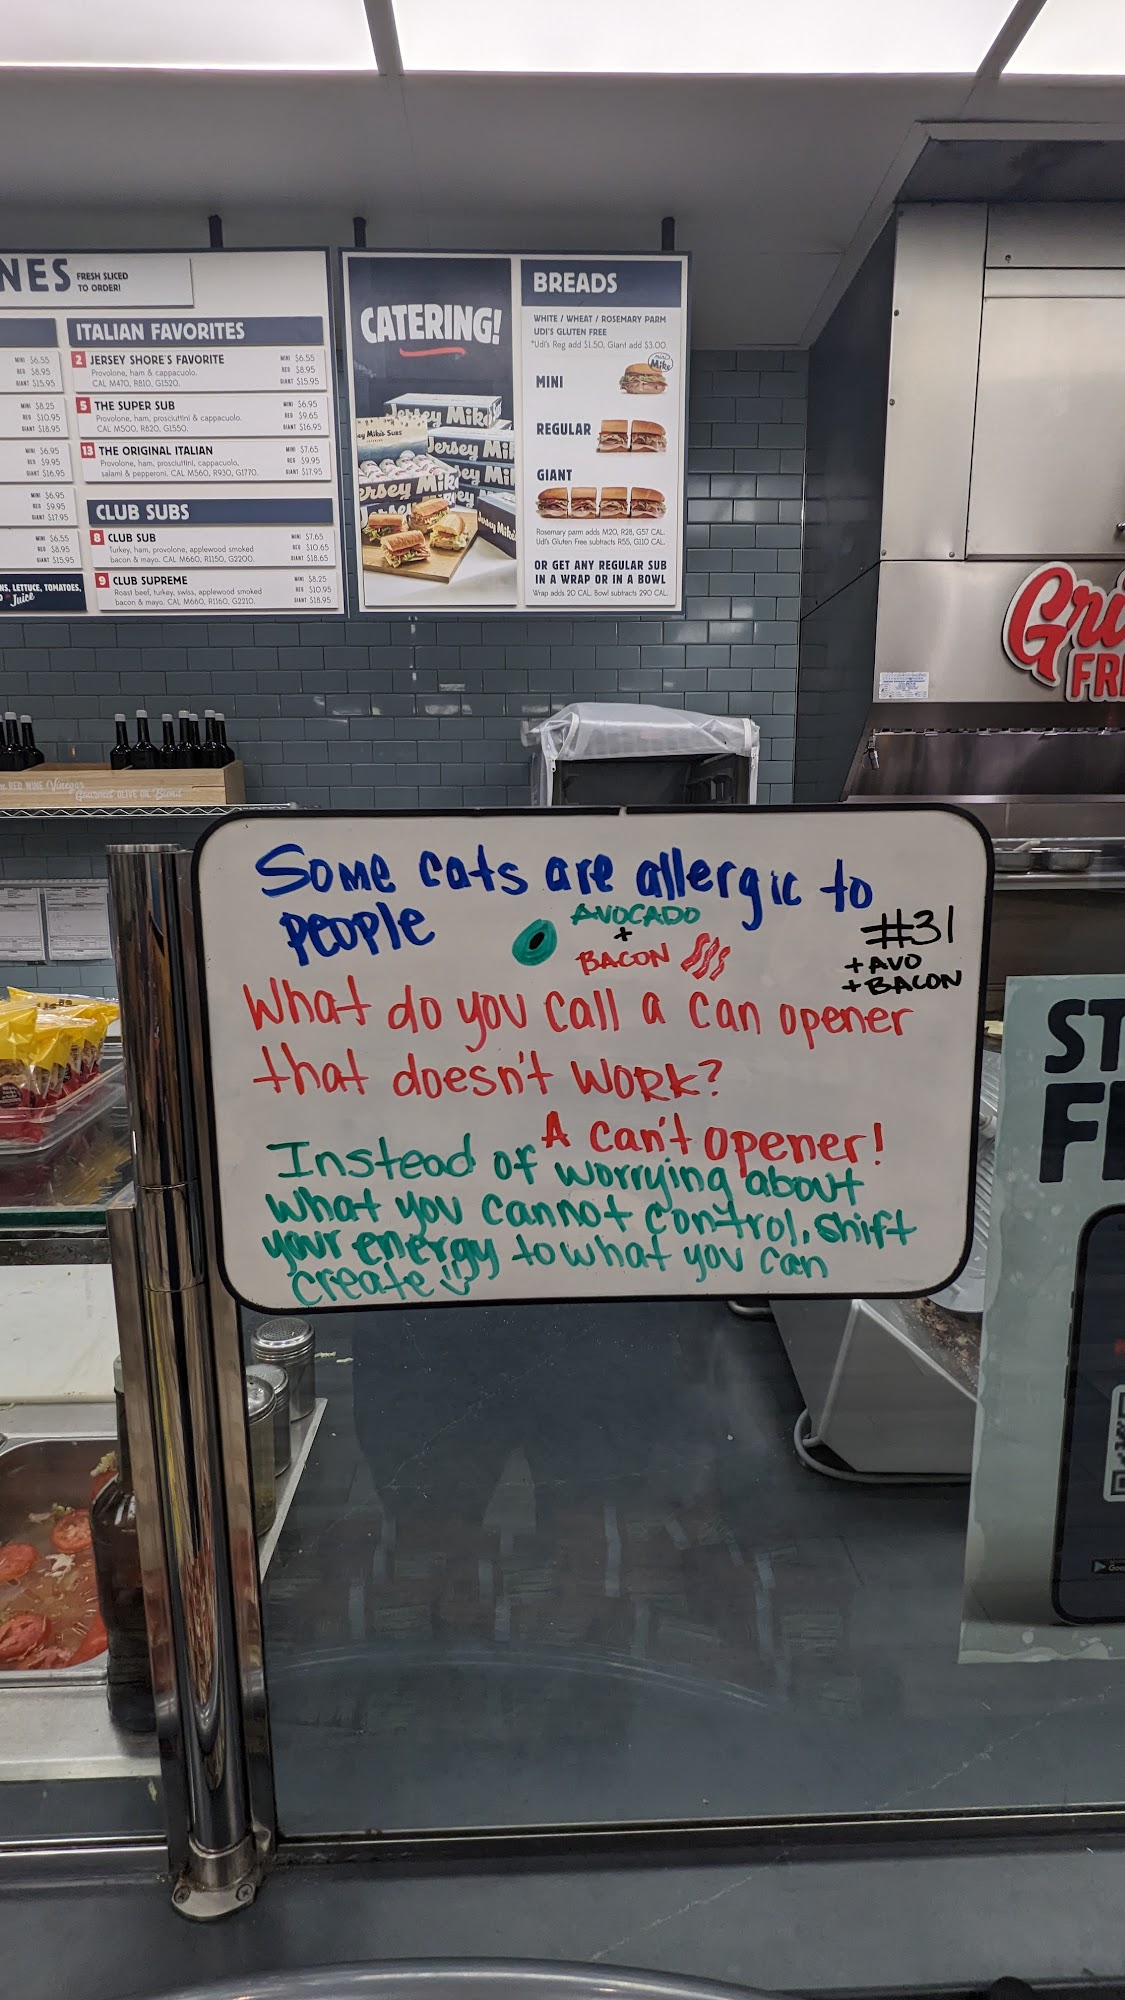 NES FRESH SLICED
TO ORDER!
MINI $6.55
REG $8.95
GIANT $15.95
MINI $8.25
REG $10.95
GIANT $18.95
MINI $6.95
REG $9.95
GIANT $16.95
MINI $6.95
REG $9.95
GIANT $17.95
MINI $6.55
REG $8.95
GIANT $15.95
NS, LETTUCE, TOMATOES,
Juice
ITALIAN FAVORITES
2 JERSEY SHORE'S FAVORITE
Provolone, ham & cappacuolo.
CAL M470, R810, G1520.
MINI $6.55
REG $8.95
GIANT $15.95
5 THE SUPER SUB
Provolone, ham, prosciuttini & cappacuolo.
CAL M500, R820, G1550.
MINI $6.95
REG $9.65
GIANT $16.95
13 THE ORIGINAL ITALIAN
Provolone, ham, prosciuttini, cappacuolo,
salami & pepperoni. CAL M560, R930, G1770.
MINI $7.65
REG $9.95
GIANT $17.95
CLUB SUBS
8 CLUB SUB
Turkey, ham, provolone, applewood smoked
bacon & mayo. CAL M660, R1150, G2200.
MINI $7.65
REG $10.65
GIANT $18.65
9 CLUB SUPREME
Roast beef, turkey, swiss, applewood smoked
bacon & mayo. CAL M660, R1160, G2210.
MINI $8.25
REG $10.95
GIANT $18.95
CATERING!
Jersey Mike
Jersey Mi
BREADS
WHITE / WHEAT / ROSEMARY PARM
UDI'S GLUTEN FREE
*Udi's Reg add $1.50, Giant add $3.00.
MINI
mini
Mike
REGULAR
GIANT
Rosemary parm adds M20, R28, G57 CAL.
Udi's Gluten Free subtracts R55, G110 CAL.
OR GET ANY REGULAR SUB
IN A WRAP OR IN A BOWL
Wrap adds 20 CAL. Bowl subtracts 290 CAL.
Gri
FRE
RED WINE Vinegar
Gourmet OLIVE OIL Blend
Some cats are allergic to
people
AVOCADO
+
BACON
#31
+ AVO
+ BACON
What do you call a can opener
that doesn't work?
A can't opener!
Instead of worrying about
what you cannot control, shift
your energy to what you can
create
ST
F